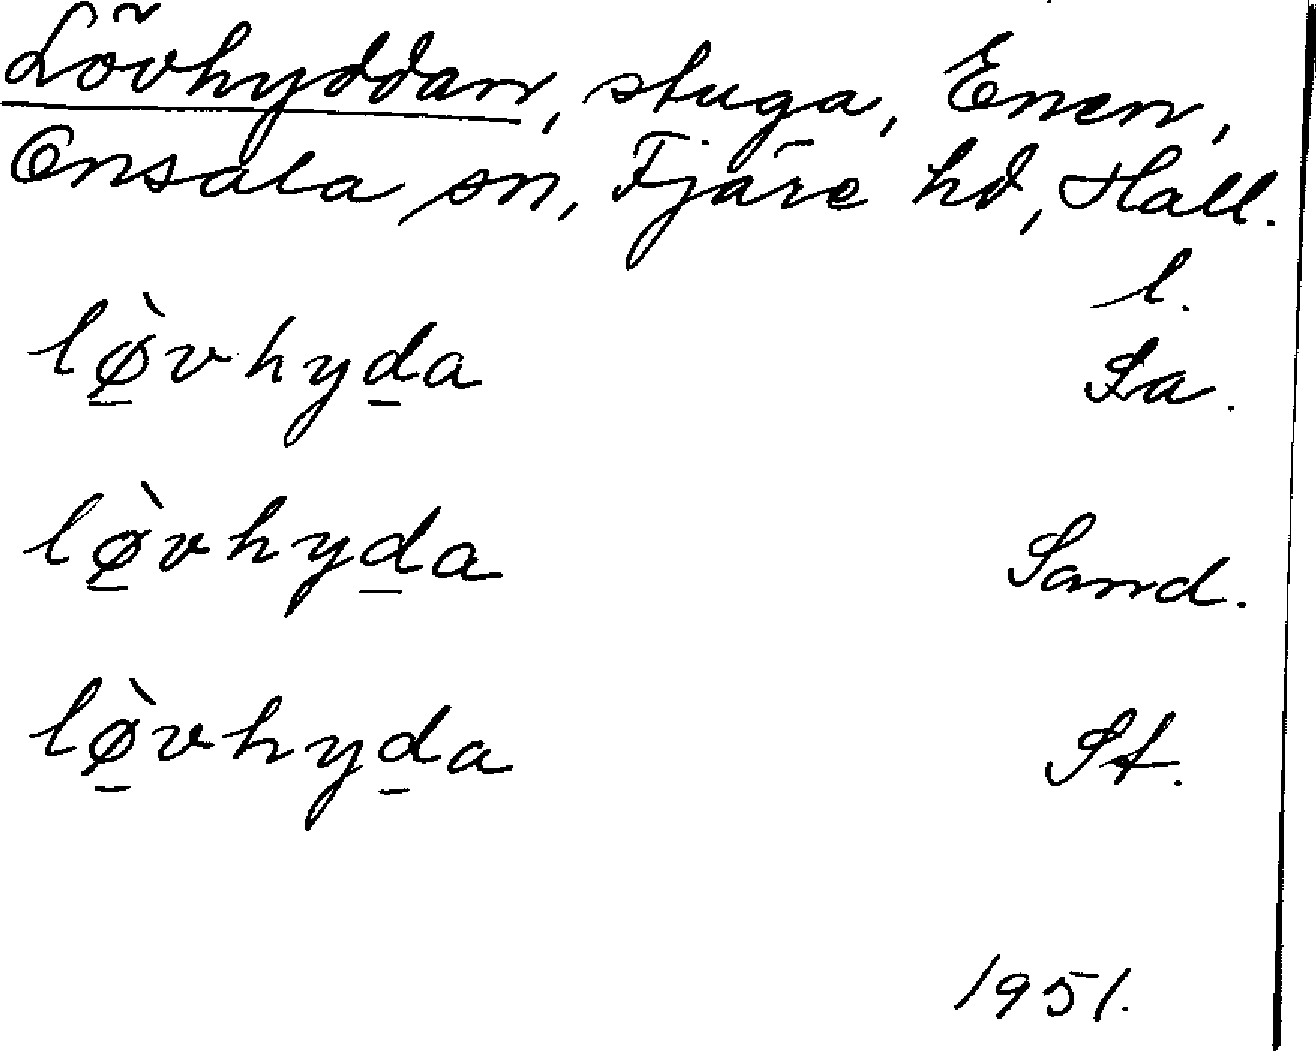 Lövhyddan, stuga, Enen,
Onsala sn, Fjäre hd, Hall.
l.
lø̱̀vhyḏa La.
lø̱̀vhyḏa Sand.
lø̱̀vhyḏa St.
1951.